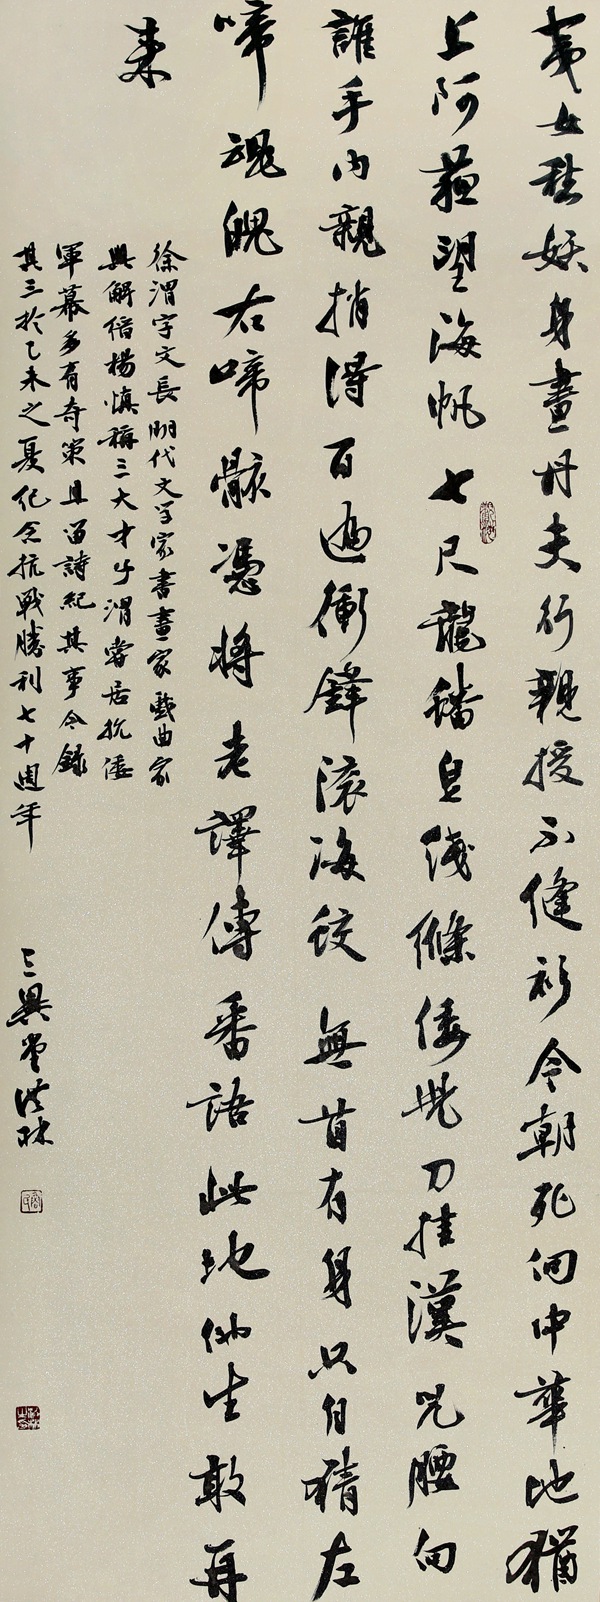 夷女愁妖身畫丹夫行親授不縫衫今朝死向中華地猶
上阿蘓望海帆七尺龍蟠皂线絛倭兜刀挂漢兜腰向
誰手内親捎得百遍衝鋒滚海蛟無首有身只自猜左
啼魂魄右啼骸憑將老譯傳番語此地他生敢再
来
徐渭字文長明代文学家書畫家戲曲家
與解縉楊慎稱三大才子渭嘗居抗倭
軍幕多有奇策且留詩紀其事今録
其三於乙未之夏纪念抗戰勝利七十週年
三異堂洪林